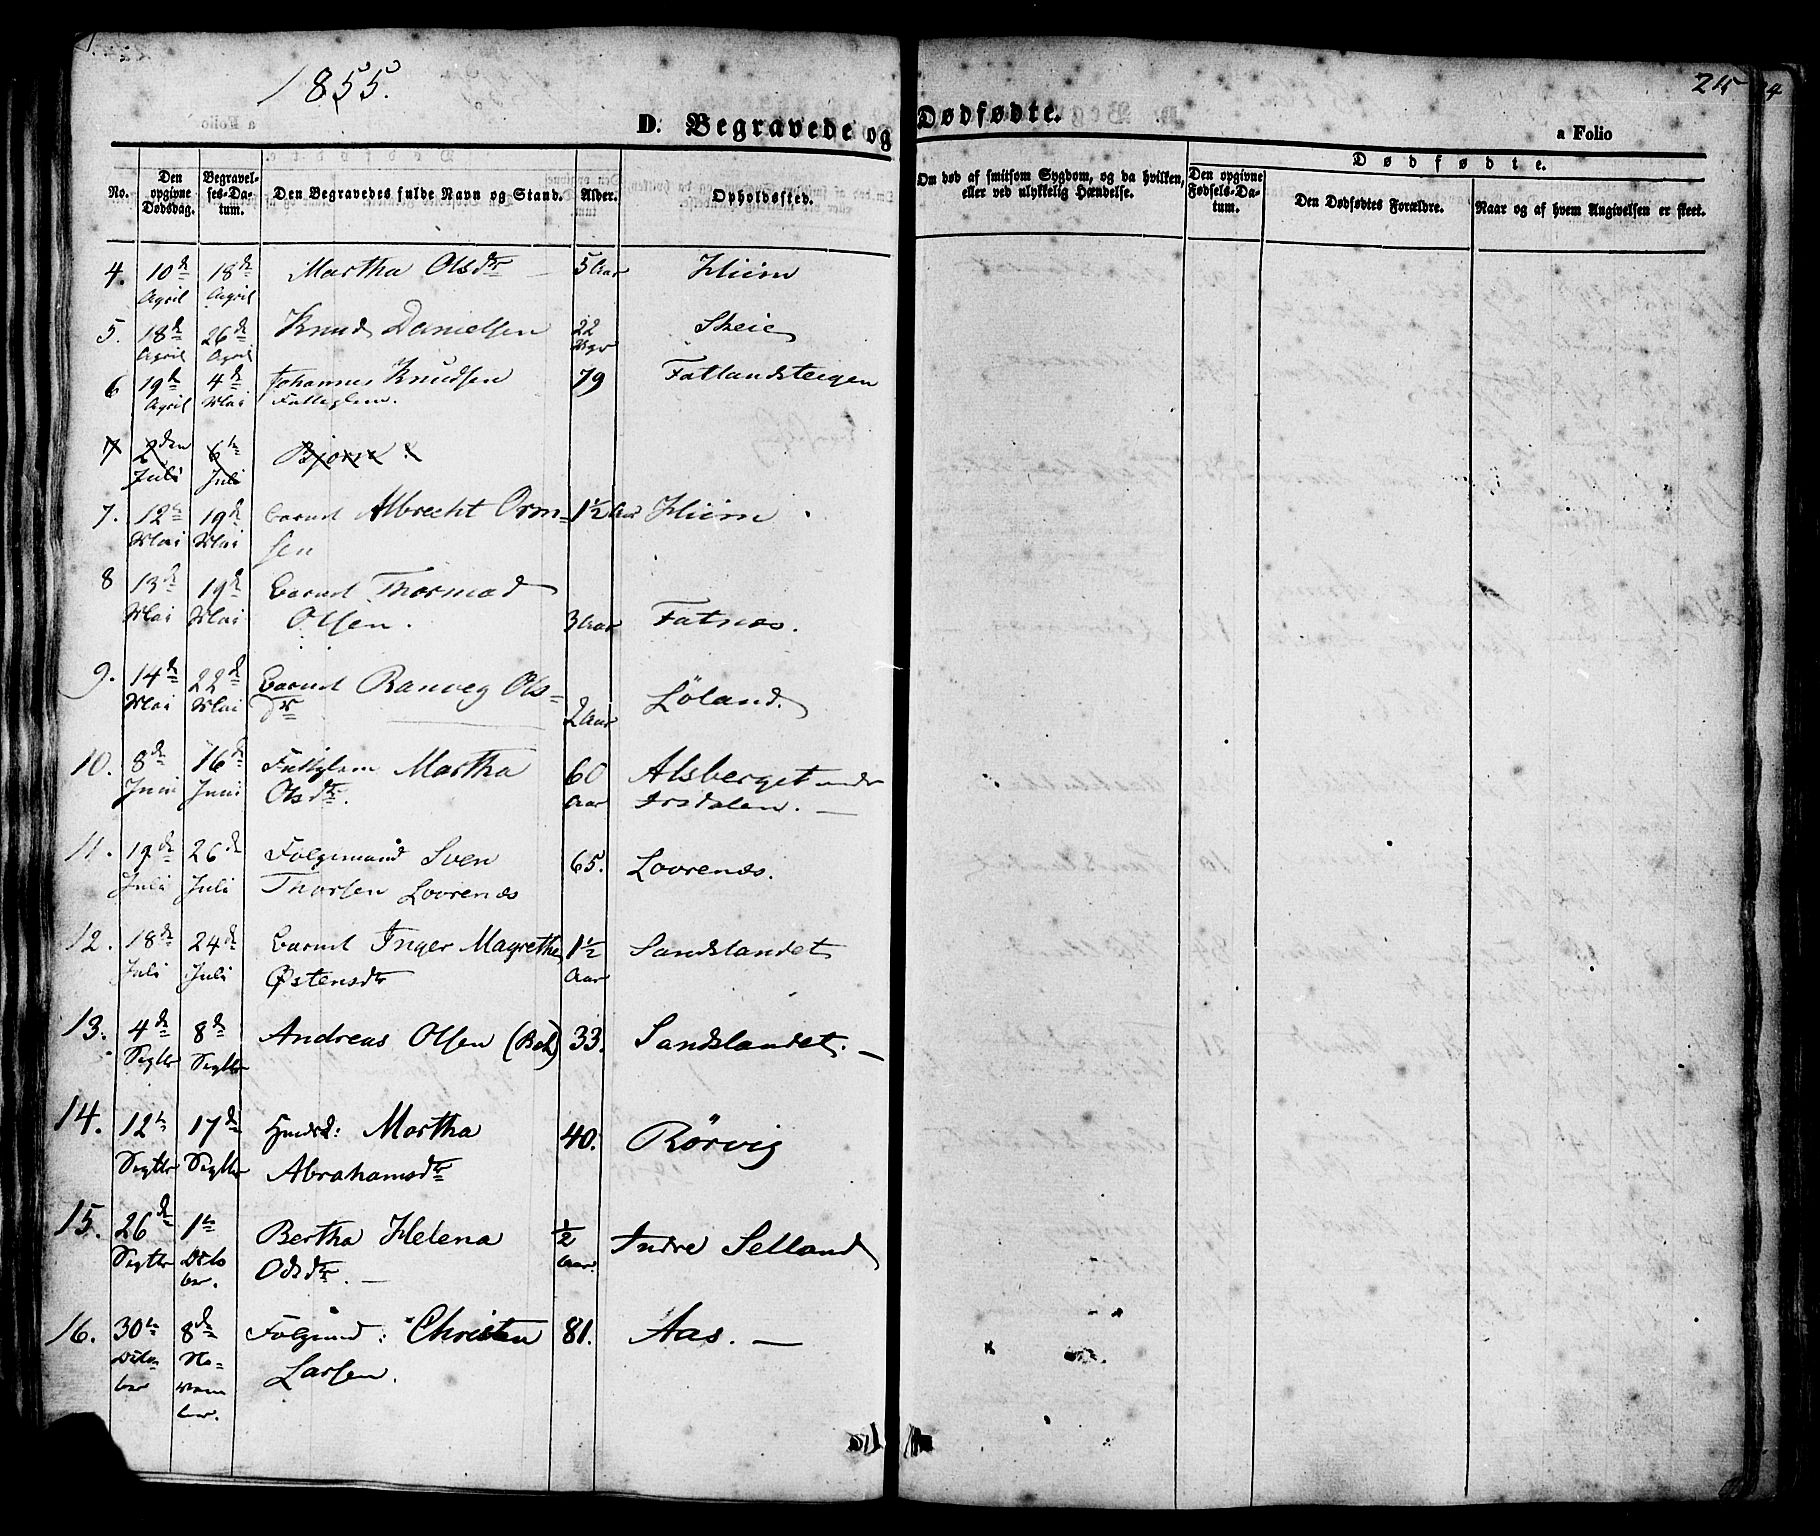 1855.
215
D. Begravede og Dødfødte.
a Folio
No.
Den opgivne Dødsdag.
Begravel-ses-Da-tum.
Den Begravedes fulde Navn og Stand.
Alder.
Opholdssted.
Om død af smitsom Sygdom, og da hvilken, eller ved ulykkelig Hændelse.
Dødfødte.
Den opgivne Fødsels-Da-tum.
Den Dødfødtes Forældre.
Naar og af hvem Angivelsen er skeet.
4. 10de 18de Martha Olsdtr 5 Aar Hiim
April April
5. 18de 26de Knud Danielsen 22 Skeie
April April Uger
6 19de 4de Johannes Knudsen 79 Fatlandsteigen
April Mai Fattiglem.
7 2den 6te Bjorne
Juli Juli
7. 12te 19de Barnet Albrecht Orm- 1½ Aar Hiim
Mai Mai sen
8 13de 19de Barnet Thormod
Mai Mai Olsen. 3 Aar Fatnæs.
9. 14de 22de Barnet Ranveg Ols-
Mai Mai dtr 2 Aar Løland.
10. 8de 16de Fattiglem Martha 60 Alsberget under
Juni Juni Olsdtr. Aar Irsdalen.
11. 19de 26de Følgemand Sven 65. Lovrenæs.
Juli Juli Thorsen Lovrenæs
12. 18de 24de Barnet Inger Magrethe 1½ Sandslandet
Juli Juli Østensdtr Aar
13. 4de 8de Andreas Olsen 33. Sandslandet.
Septbr Septbr
14. 12te 17de Huusk: Martha 40. Rørvig
Septbr Septbr Abrahamsdtr
15. 26de 1te Bertha Helena ½ Indre Selland
Septbr Octo Odsdtr. Aar
ber.
16. 30te 8de Følgmd: Christen 81. Aas.
Octo No- Larsen.
ber vem
ber.